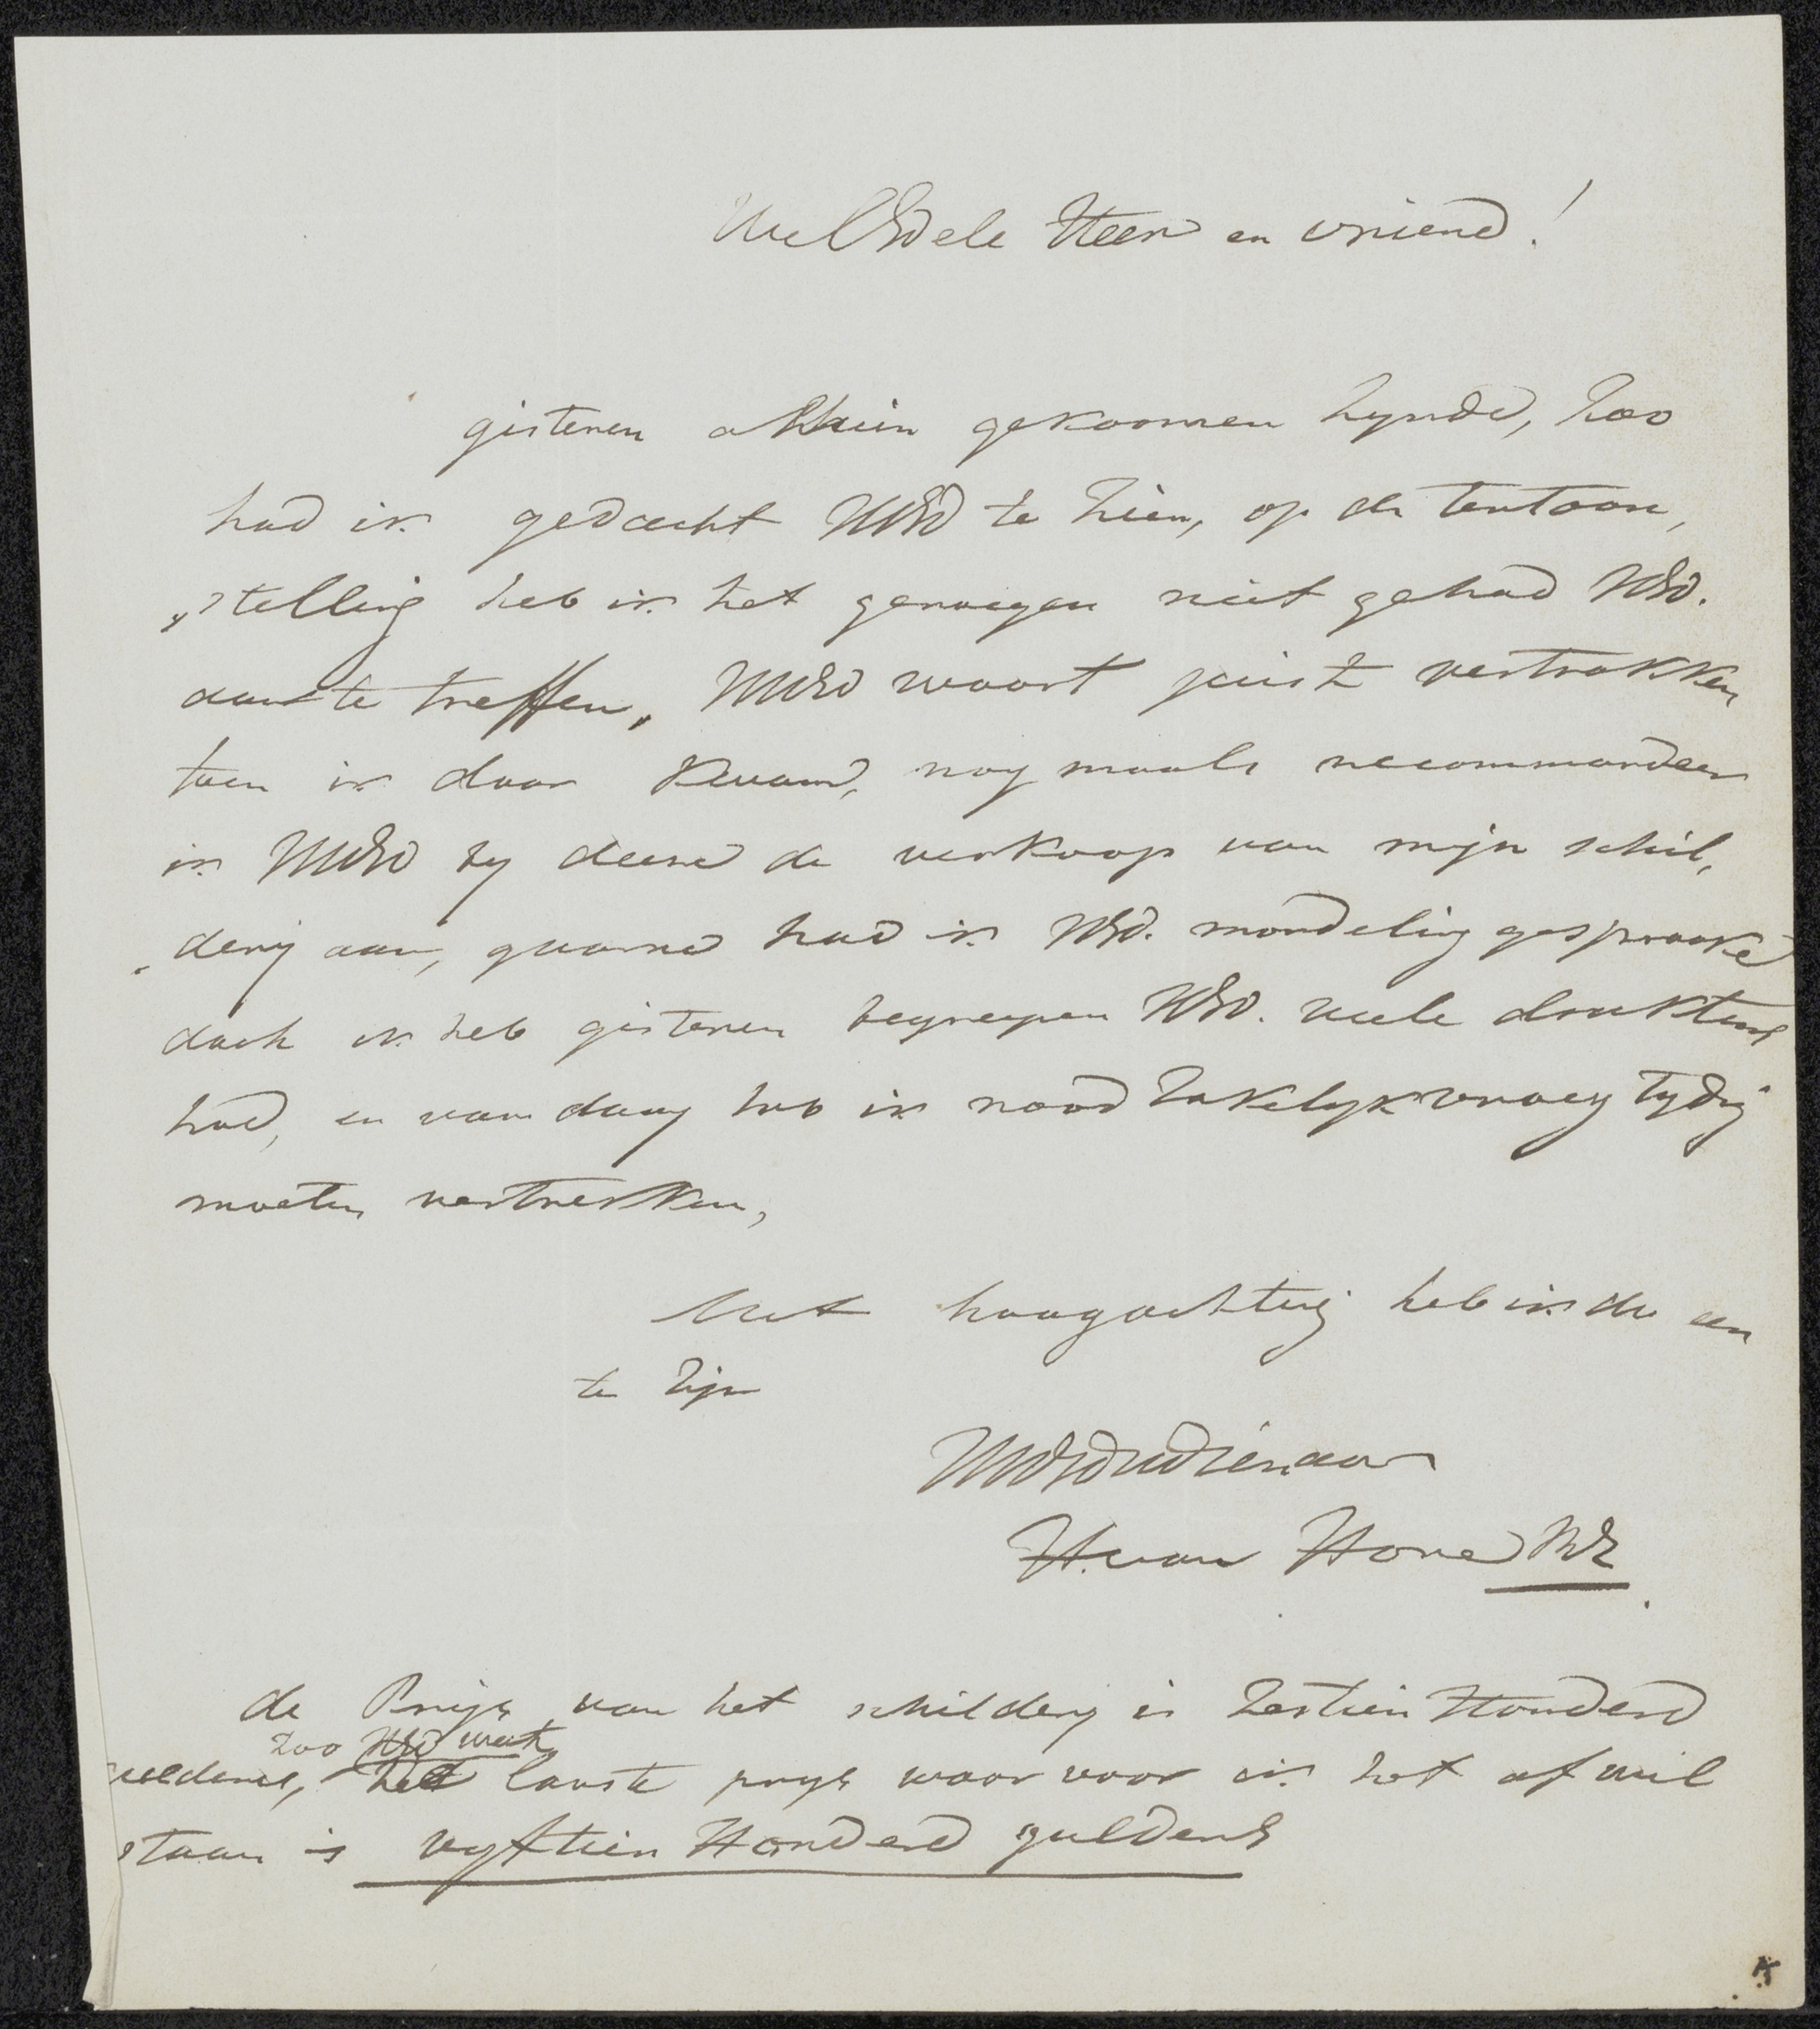 WelEdele Heer en vriend!
gisteren alhier gekoomen zynde, zoo
had ik gedacht UWEd te zien, op de tentoon,
„stelling heb ik het genoegen niet gehad UEd.
aan te treffen, UWEd waart juist vertrokken
toen ik daar kwam, nogmaals recommandeer
ik UWEd by deese de verkoop van mijn schil,
„derij aan, gaarne had ik UEd. mondeling gesprooke
doch ik heb gisteren begreepen UEd. veele druktens
had, en van daag heb ik noodzakelyk vroeg tydig
moeten vertrekken,
Met hoogachting heb ik de eer
te zijn
UWEdDwDienaar
H. van Hove Bz
de Prijs van het schildery is Zestien Honderd
zoo UEd weet
guldens, het laaste prys waar voor ik het af wil
staan is vyftien Honderd guldens